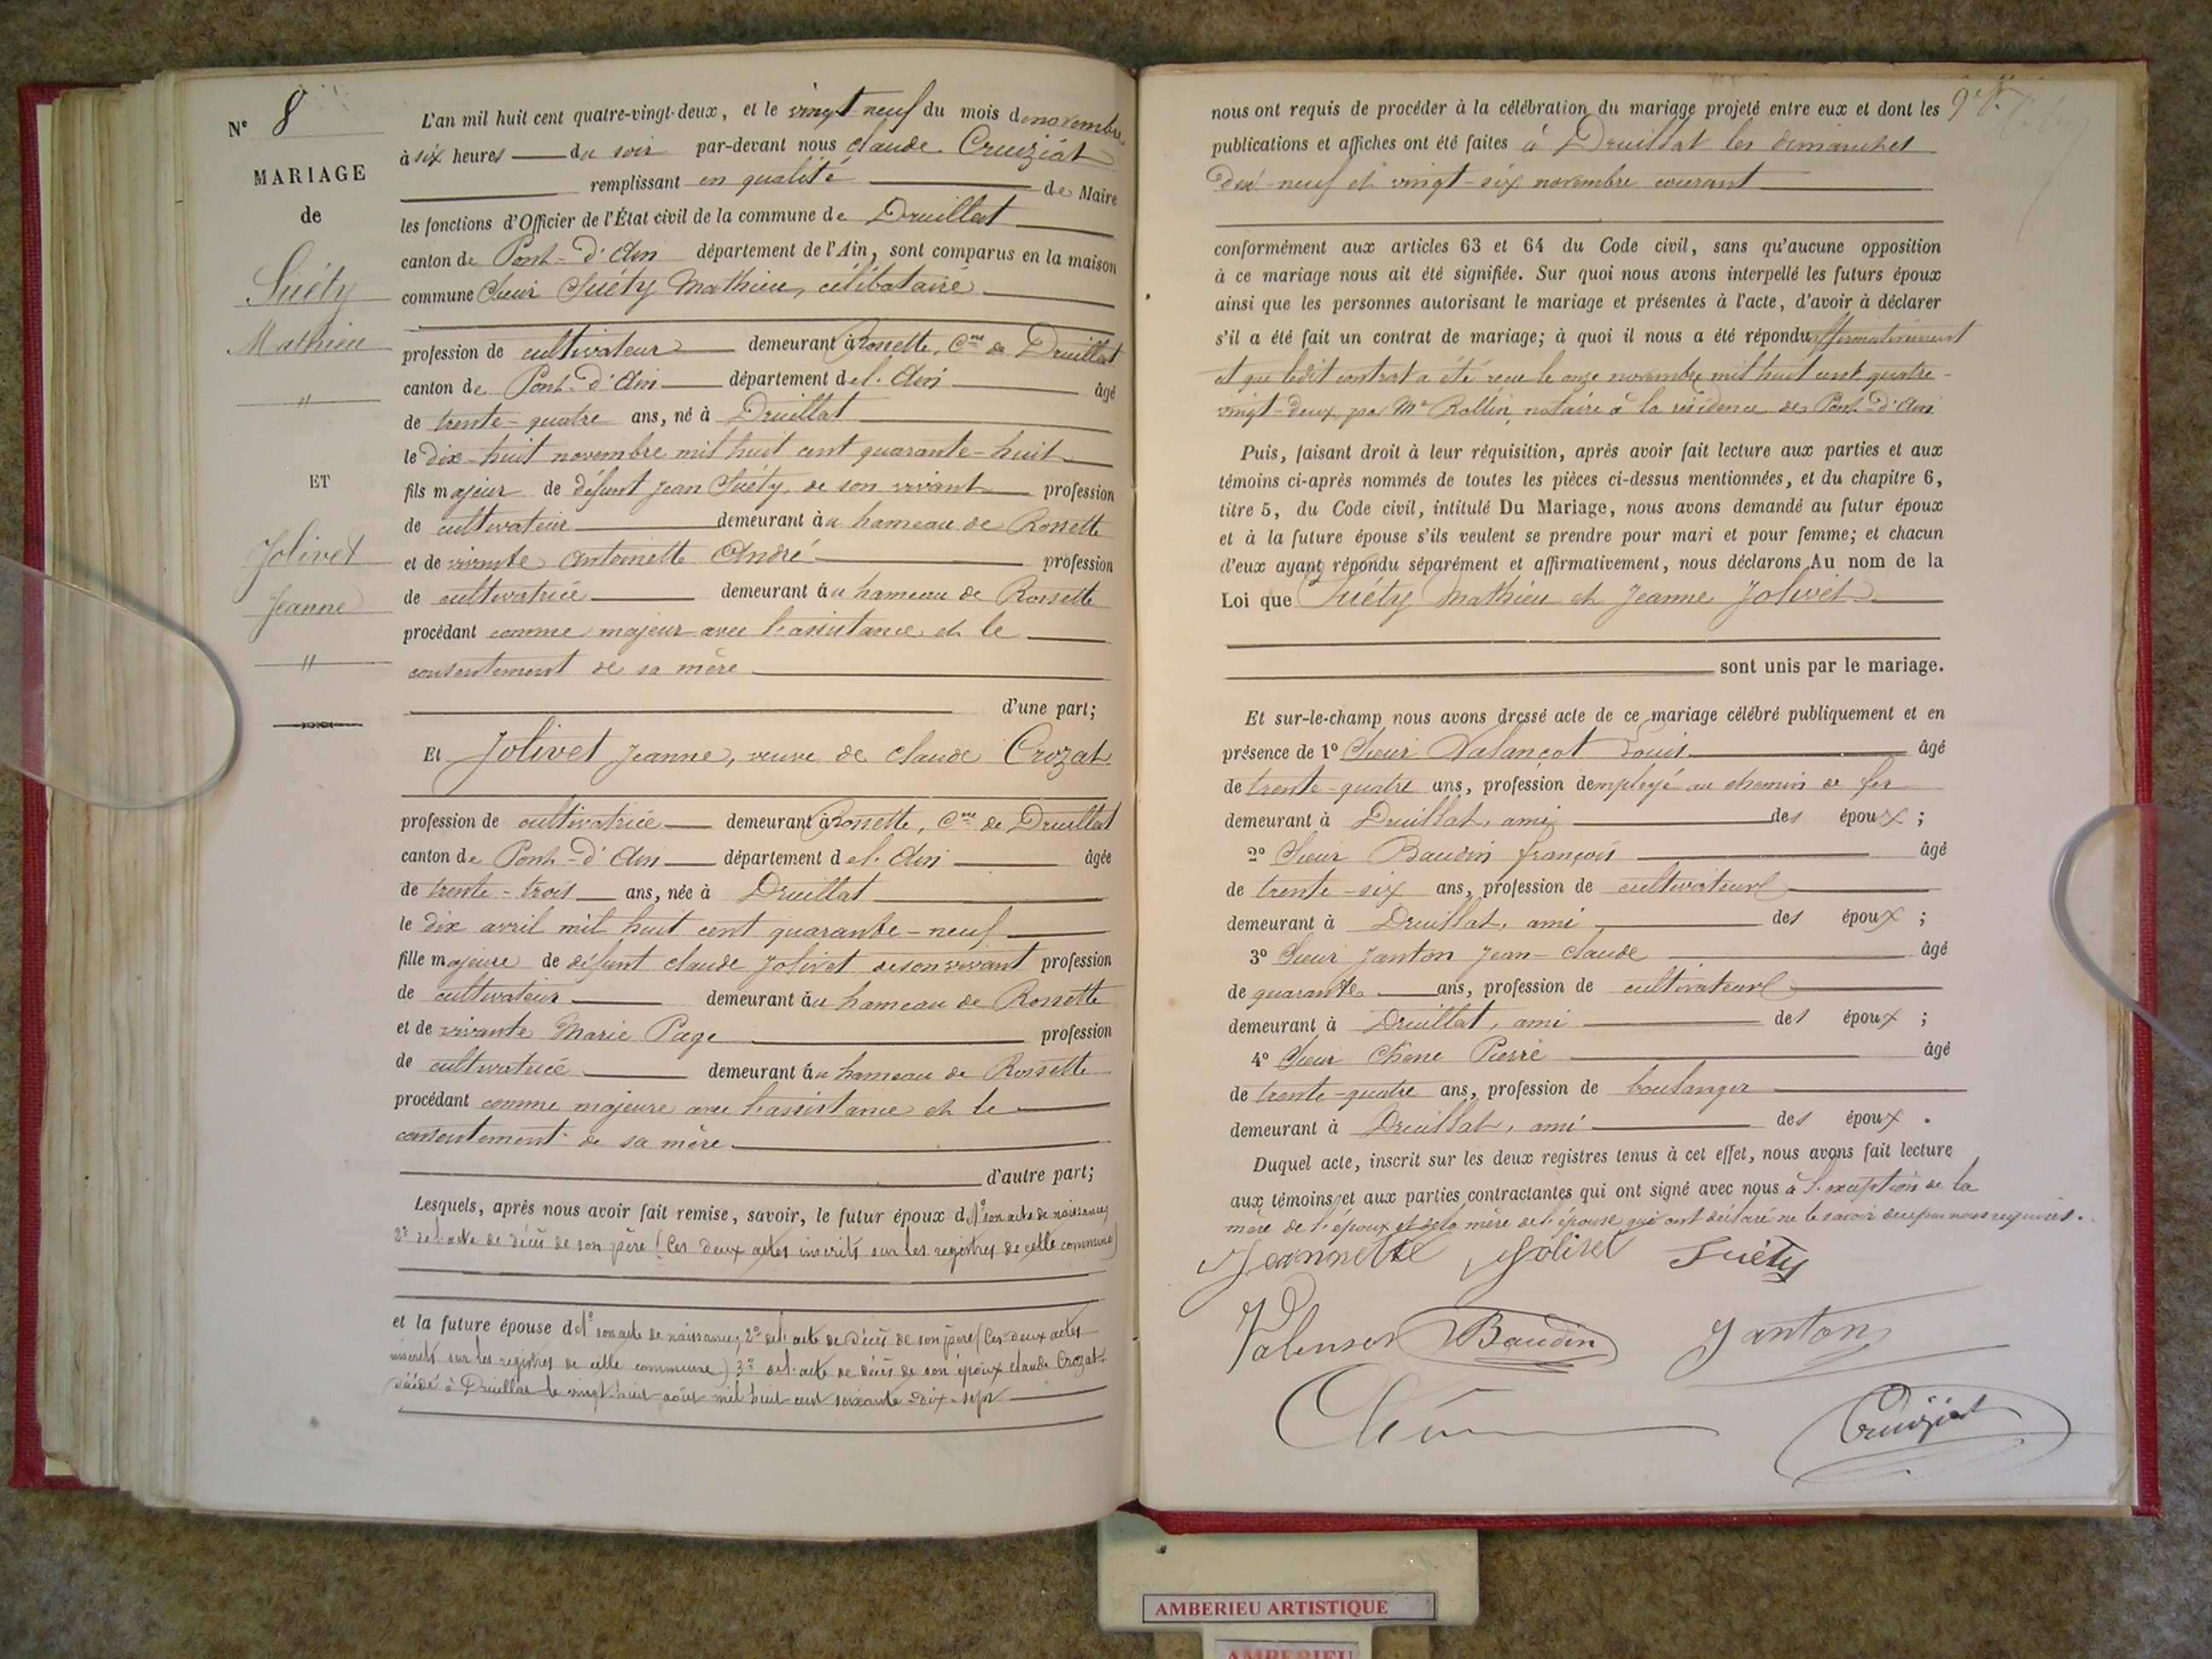 N° 8
MARIAGE
de
Suéty
Mathieu
"
ET
Jolivet
Jeanne
"
L'an mil huit cent quatre-vingt-deux, et le vingt neuf du mois de novembre
à six heures du soir par-devant nous Claude Cruiziat
remplissant en qualité de Maire
les fonctions d'Officier de l'État civil de la commune de Druillat
canton de Pont-d'Ain département de l'Ain, sont comparus en la maison
commune Sieur Suéty Mathieu, célibataire
profession de cultivateur demeurant à Rossette, Cne de Druillat
canton de Pont-d'Ain département de l'Ain âgé
de trente-quatre ans, né à Druillat
le dix-huit novembre mil huit cent quarante-huit
fils majeur de défunt Jean Suéty, de son vivant profession
de cultivateur demeurant au hameau de Rossette
et de vivante Antoinette André profession
de cultivatrice demeurant au hameau de Rossette
procédant comme majeur avec l'assistance et le
consentement de sa mère
d'une part;
Et Jolivet Jeanne, veuve de Claude Crozat
profession de cultivatrice demeurant à Rossette, Cne de Druillat
canton de Pont-d'Ain département de l'Ain âgée
de trente-trois ans, née à Druillat
le dix avril mil huit cent quarante-neuf
fille majeure de défunt Claude Jolivet de son vivant profession
de cultivateur demeurant au hameau de Rossette
et de vivante Marie Page profession
de cultivatrice demeurant au hameau de Rossette
procédant comme majeure avec l'assistance et le
consentement de sa mère
d'autre part;
Lesquels, après nous avoir fait remise, savoir, le futur époux de 1° son acte de naissance,
2° de l'acte de décès de son père (Ces deux actes inscrits sur les registres de cette commune)
et la future épouse de 1° son acte de naissance; 2° de l'acte de décès de son père (Ces deux actes
inscrits sur les registres de cette commune) 3° de l'acte de décès de son époux Claude Crozat
décédé à Druillat le vingt huit août mil huit cent soixante-dix-sept
nous ont requis de procéder à la célébration du mariage projeté entre eux et dont les
publications et affiches ont été faites à Druillat les dimanches
dix-neuf et vingt-six novembre courant
conformément aux articles 63 et 64 du Code civil, sans qu'aucune opposition
à ce mariage nous ait été signifiée. Sur quoi nous avons interpellé les futurs époux
ainsi que les personnes autorisant le mariage et présentes à l'acte, d'avoir à déclarer
s'il a été fait un contrat de mariage; à quoi il nous a été répondu affirmativement
et que ledit contrat a été reçu le onze novembre mil huit cent quatre-
vingt-deux, par Me Rollin, notaire à la résidence de Pont-d'Ain
Puis, faisant droit à leur réquisition, après avoir fait lecture aux parties et aux
témoins ci-après nommés de toutes les pièces ci-dessus mentionnées, et du chapitre 6,
titre 5, du Code civil, intitulé Du Mariage, nous avons demandé au futur époux
et à la future épouse s'ils veulent se prendre pour mari et pour femme; et chacun
d'eux ayant répondu séparément et affirmativement, nous déclarons Au nom de la
Loi que Suéty Mathieu et Jeanne Jolivet
sont unis par le mariage.
Et sur-le-champ nous avons dressé acte de ce mariage célébré publiquement et en
présence de 1° Sieur Valançot Louis âgé
de trente-quatre ans, profession d'employé au chemin de fer
demeurant à Druillat, ami des époux;
2° Sieur Baudin françois âgé
de trente-six ans, profession de cultivateur
demeurant à Druillat, ami des époux;
3° Sieur Janton Jean-Claude âgé
de quarante ans, profession de cultivateur
demeurant à Druillat, ami des époux;
4° Sieur Chêne Pierre âgé
de trente-quatre ans, profession de boulanger
demeurant à Druillat, ami des époux.
Duquel acte, inscrit sur les deux registres tenus à cet effet, nous avons fait lecture
aux témoins et aux parties contractantes qui ont signé avec nous à l'exception de la
mère de l'époux et de la mère de l'épouse qui ont déclaré ne le savoir de ce par nous requises.
Jeannette Jolivet Suéty
Baudin Janton
Cruiziat
AMBERIEU ARTISTIQUE
AMBERIEU